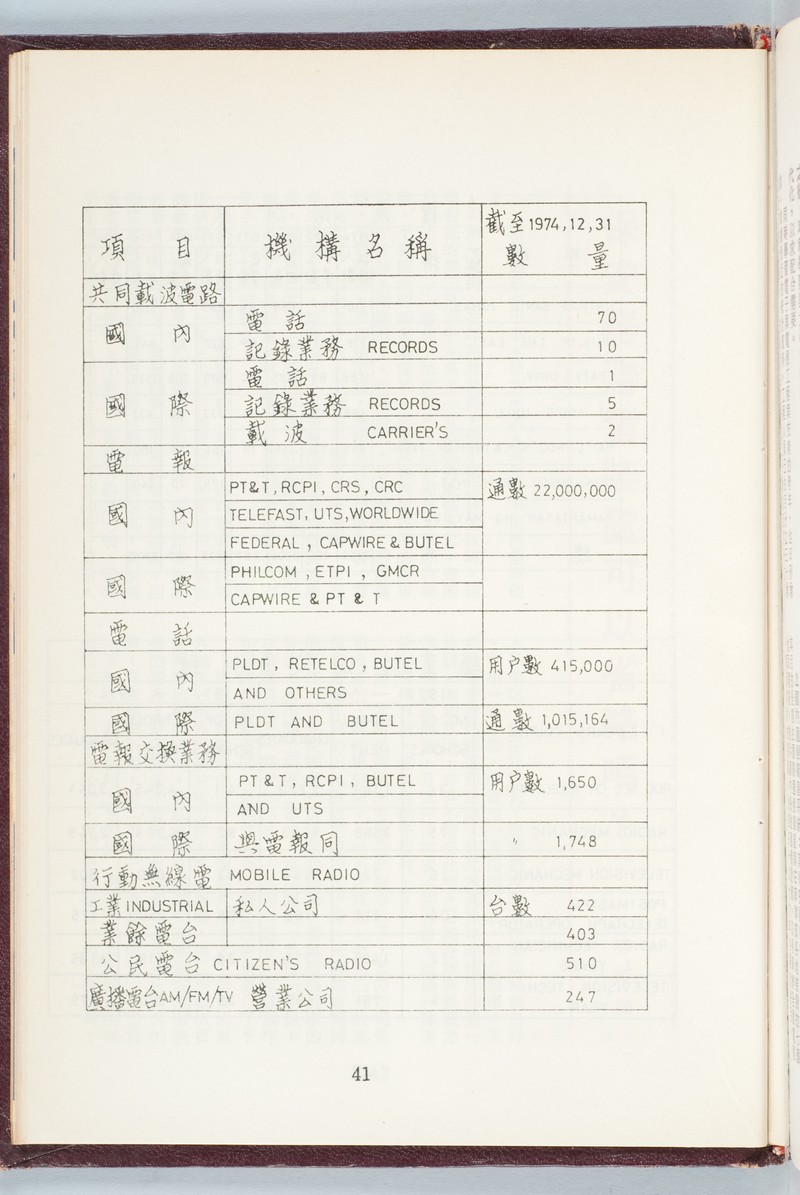 項目 機構名稱 截至1974,12,31
數量
共同載波電路
國內 電話 70
記錄業務 RECORDS 10
國際 電話 1
記錄業務 RECORDS 5
載波 CARRIER'S 2
電報
國內 PT&T, RCPI, CRS, CRC 通數 22,000,000
TELEFAST, UTS, WORLDWIDE
FEDERAL, CAPWIRE & BUTEL
國際 PHILCOM, ETPI, GMCR
CAPWIRE & PT & T
電話
國內 PLDT, RETELCO, BUTEL 用户數 415,000
AND OTHERS
國際 PLDT AND BUTEL 通數 1,015,164
電報交換業務
國內 PT&T, RCPI, BUTEL 用户數 1,650
AND UTS
國際 與電報同 〃 1,748
行動無線電 MOBILE RADIO
工業 INDUSTRIAL 私人公司 台數 422
業餘電台 403
公民電台 CITIZEN'S RADIO 510
廣播電台AM/FM/TV 營業公司 247
41